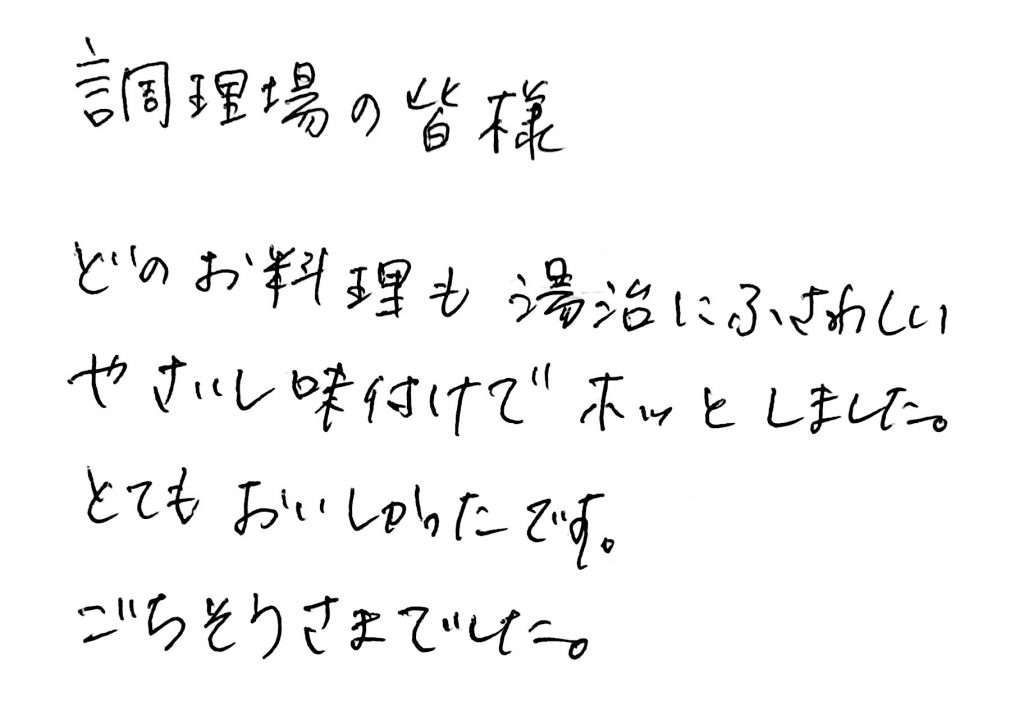 調理場の皆様
どのお料理も湯治にふさわしい
やさいし味付けでホッとしました。
とてもおいしかったです。
ごちそうさまでした。